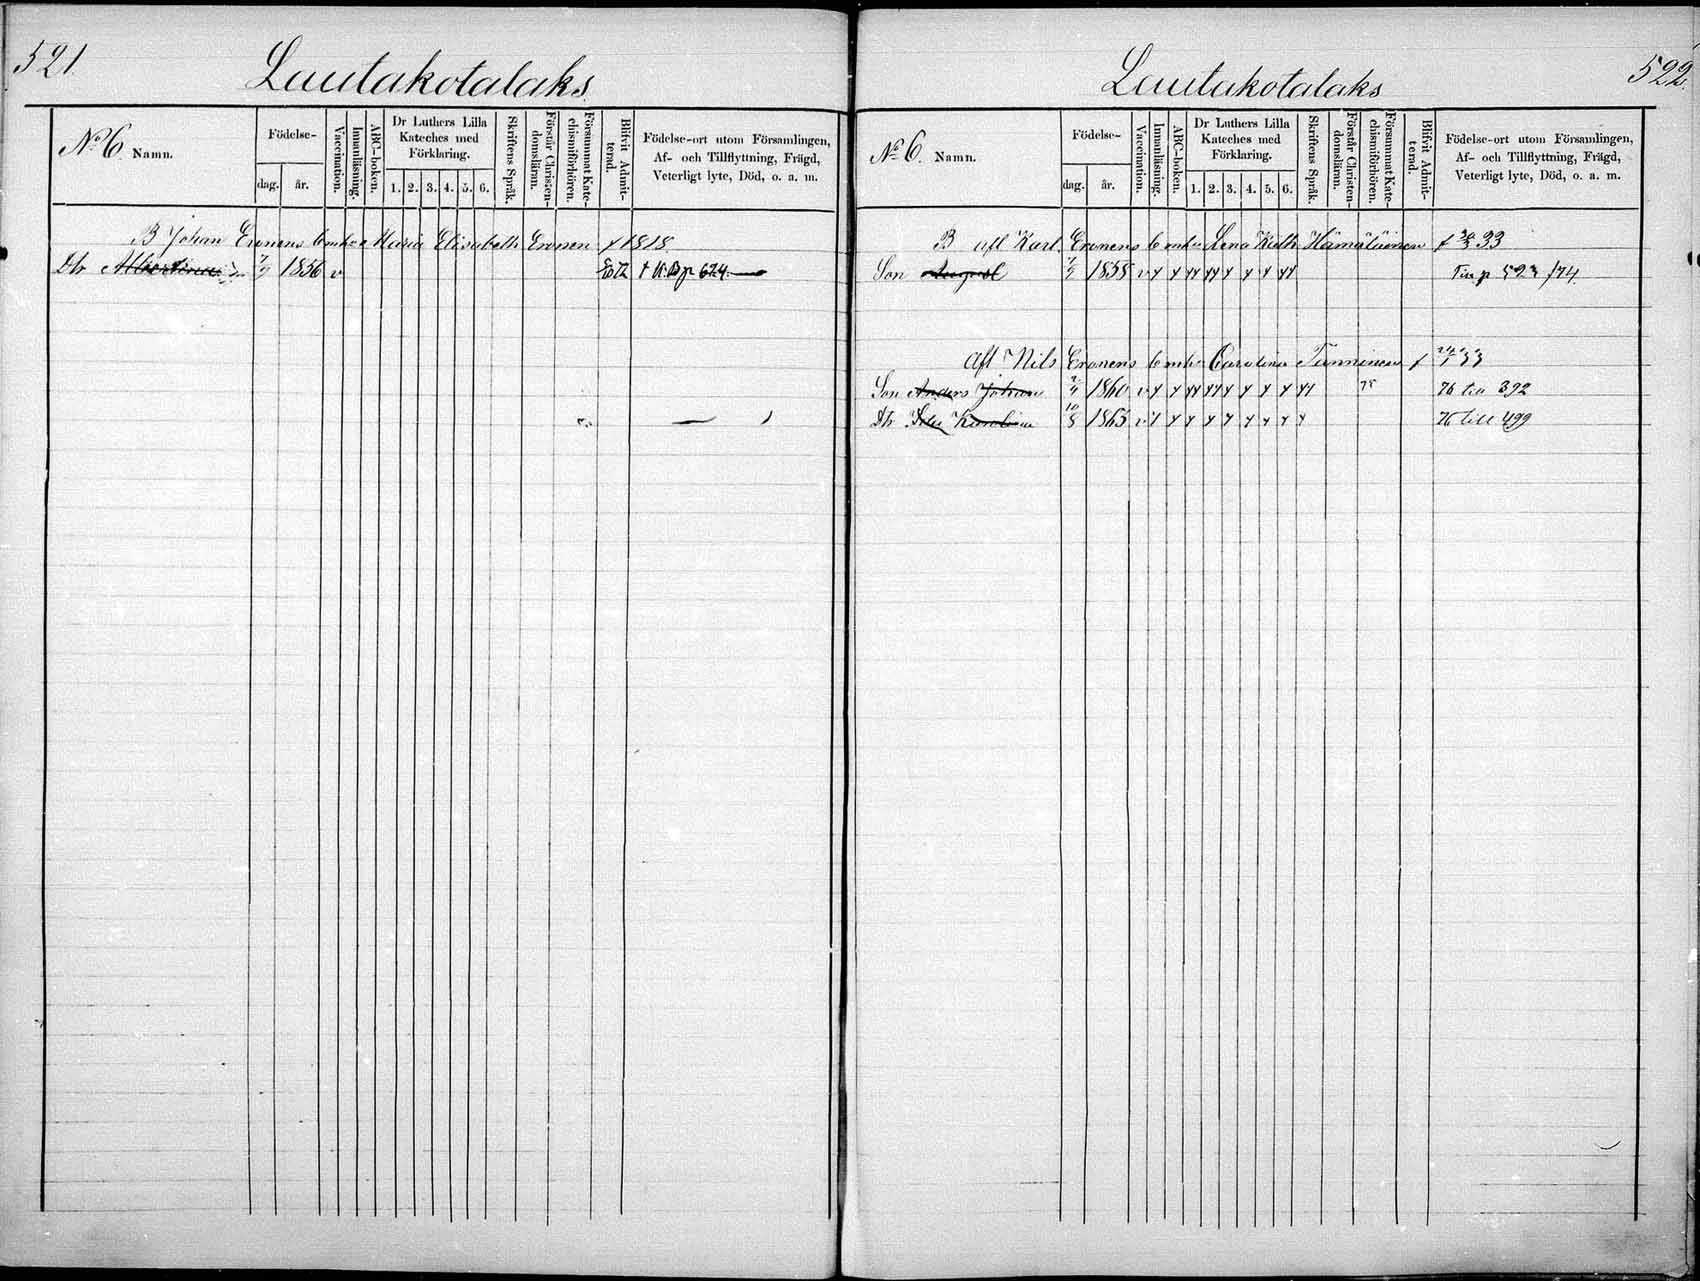 521.
Lautakotalaks
No 6. Namn.
Födelse-
dag.
år.
Vaccination.
Innanläsning.
ABC-boken.
Dr Luthers Lilla Kateches med Förklaring.
1. 2. 3. 4. 5. 6.
Skriftens Språk.
Förstår Christendomsläran.
Försummat Katechismiförhören.
Blifvit Admitterad.
Födelse-ort utom Församlingen,
Af- och Tillflyttning, Frägd,
Veterligt lyte, Död, o. a. m.
B Johan Eronens Maria Elisabeth Eronen 1818
Dtr Albertina 7/9 1856 v K.B p 624
522.
Lautakotalaks
No 6. Namn.
Födelse-
dag.
år.
Vaccination.
Innanläsning.
ABC-boken.
Dr Luthers Lilla Kateches med Förklaring.
1. 2. 3. 4. 5. 6.
Skriftens Språk.
Förstår Christendomsläran.
Försummat Katechismiförhören.
Blifvit Admitterad.
Födelse-ort utom Församlingen,
Af- och Tillflyttning, Frägd,
Veterligt lyte, Död, o. a. m.
B afl Karl Eronens Lena Hämäläinen 33
Son August 1858 p 523 /74
Afl Nils Eronens Carolina Tanninen
Son Anders Johan 1860 76 392
Dtr Karolina 10/8 1863 76 till 499